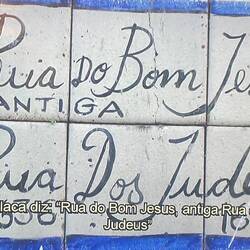 Rua do Bom Jes
ANTIGA
Rua Dos Jude
laca diz: "Rua do Bom Jesus, antiga Rua
Judeus"